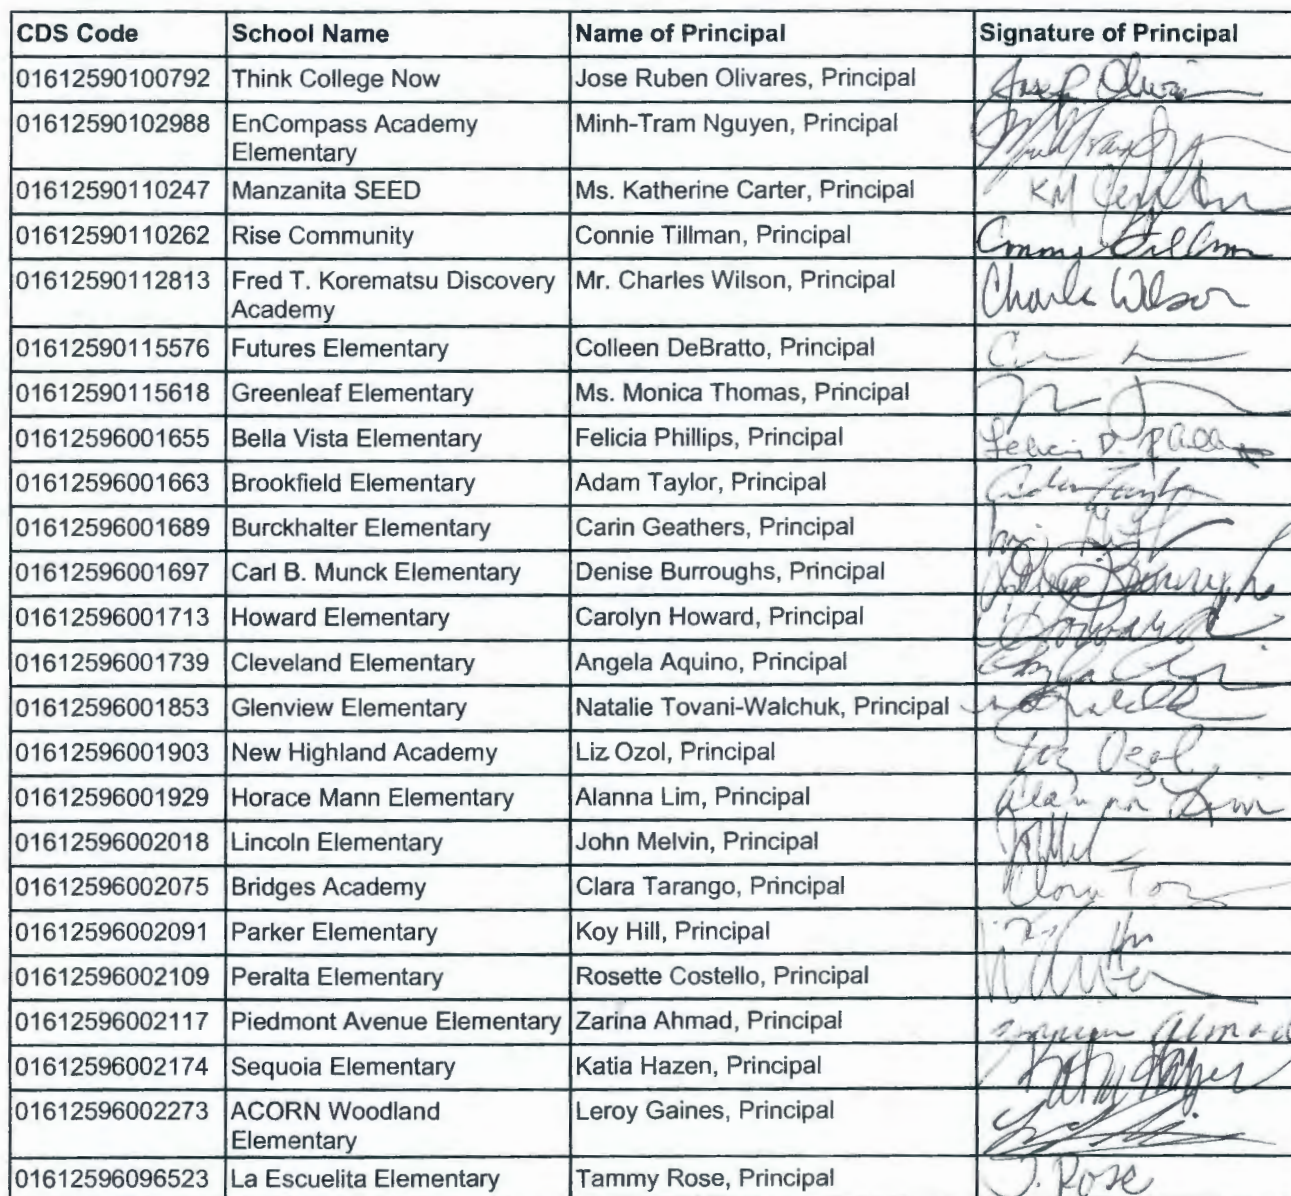 CDS Code School Name Name of Principal Signature of Principal
01612590100792 Think College Now Jose Ruben Olivares, Principal
01612590102988 EnCompass Academy Minh-Tram Nguyen, Principal
Elementary
01612590110247 Manzanita SEED Ms. Katherine Carter, Principal KM
01612590110262 Rise Community Connie Tillman, Principal Connie Tillman
01612590112813 Fred T. Korematsu Discovery Mr. Charles Wilson, Principal Charles Wilson
Academy
01612590115576 Futures Elementary Colleen DeBratto, Principal
01612590115618 Greenleaf Elementary Ms. Monica Thomas, Principal
01612596001655 Bella Vista Elementary Felicia Phillips, Principal Felicia D. Phillips
01612596001663 Brookfield Elementary Adam Taylor, Principal Adam Taylor
01612596001689 Burckhalter Elementary Carin Geathers, Principal
01612596001697 Carl B. Munck Elementary Denise Burroughs, Principal Denise Burroughs
01612596001713 Howard Elementary Carolyn Howard, Principal
01612596001739 Cleveland Elementary Angela Aquino, Principal
01612596001853 Glenview Elementary Natalie Tovani-Walchuk, Principal
01612596001903 New Highland Academy Liz Ozol, Principal Liz Ozol
01612596001929 Horace Mann Elementary Alanna Lim, Principal Alanna Lim
01612596002018 Lincoln Elementary John Melvin, Principal
01612596002075 Bridges Academy Clara Tarango, Principal Clara
01612596002091 Parker Elementary Koy Hill, Principal
01612596002109 Peralta Elementary Rosette Costello, Principal
01612596002117 Piedmont Avenue Elementary Zarina Ahmad, Principal Ahmad
01612596002174 Sequoia Elementary Katia Hazen, Principal Katia Hazen
01612596002273 ACORN Woodland Leroy Gaines, Principal
Elementary
01612596096523 La Escuelita Elementary Tammy Rose, Principal T. Rose